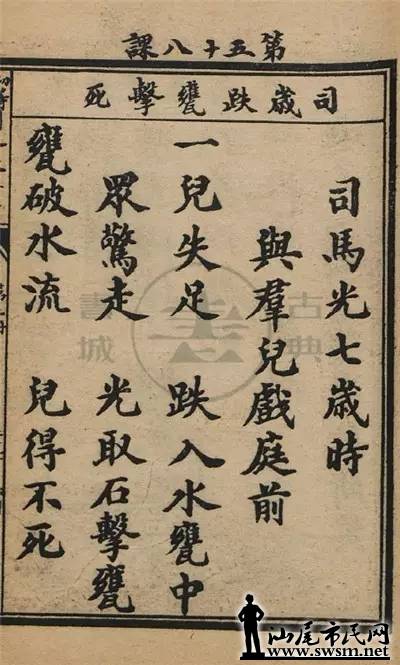 第五十八課
司歲跌甕擊死
司馬光七歲時
與羣兒戲庭前
一兒失足 跌入水甕中
眾驚走 光取石擊甕
甕破水流 兒得不死
古典書城
汕尾市民网
www.swsm.net